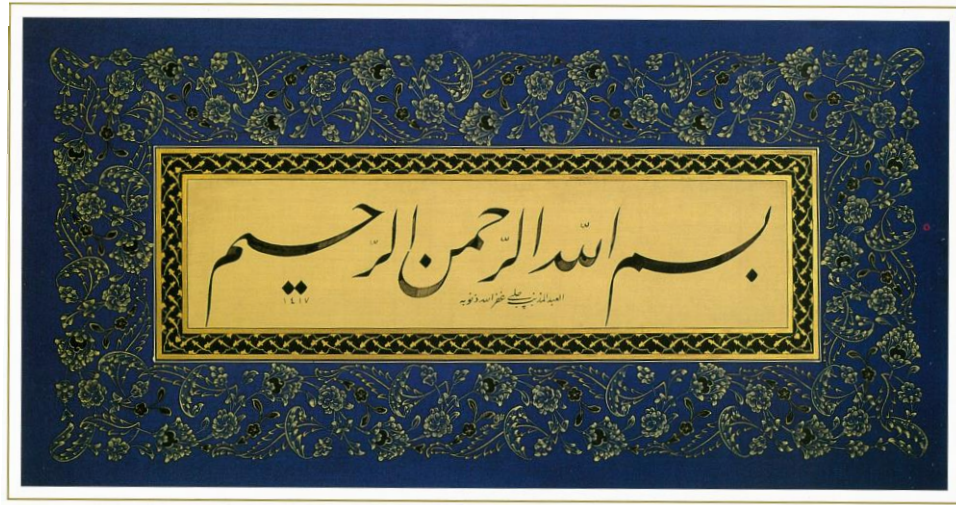 بسم الله الرحمن الرحيم
العبد المذنب چلبی غفر الله ذنوبه
١٤١٧